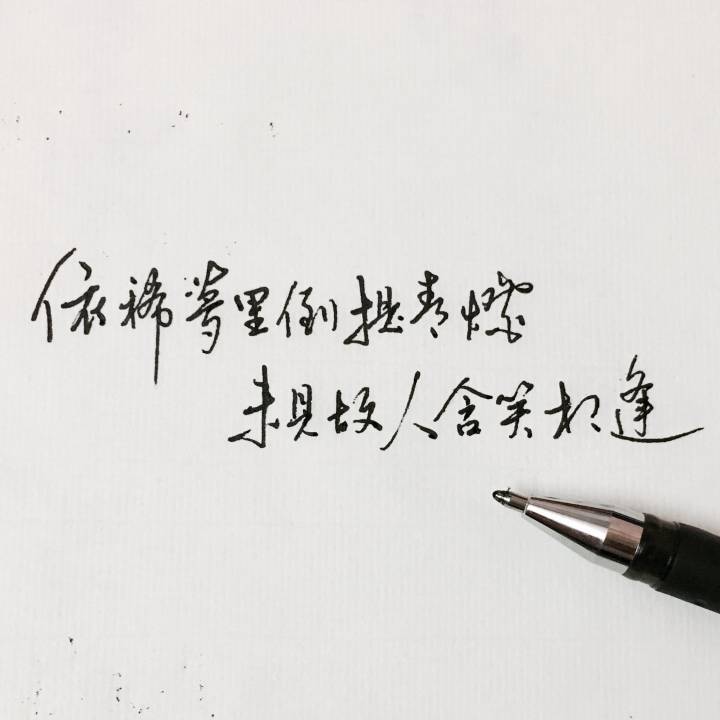 依稀梦里倒提青灯
未见故人含笑相逢